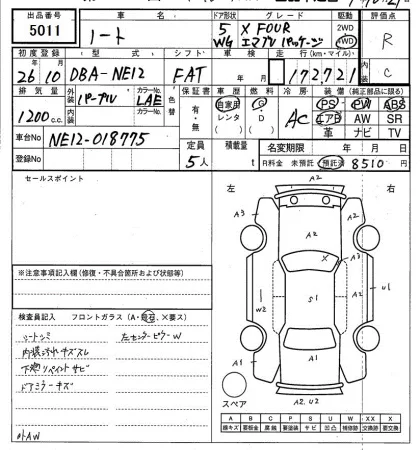 出品番号 車名 ドア形状 グレード 駆動 評価点
5011 ノート 5 WG X FOUR エアロパッケージ 2WD 4WD R
初度登録 型式 シフト 車検 走行(km・マイル) 内装
26 10 DBA-NE12 FAT 年 月 172,721 C
排気量 外装 カラーNo. 色替 保証書 車歴 燃料 冷房 装備 (純正部品に限る)
1200 c.c. パープル LAE 有・無 自家用 レンタ G・D AC PS PW ABS
内装 カラーNo. エアB AW SR
革 ナビ TV
車台No NE12-018775 定員 積載量 名変期限 年 月 日
登録No 5人 t R料金 未預託 預託済 8510 円
セールスポイント
左 右
A2
A3 A2
A3
X
W2 S1 A2 U1
A1
A1 A1
A2. U2
スペア
※注意事項記入欄(修復・不具合箇所および状態等)
検査員記入 フロントガラス(A・飛石、×要ス)
シートシミ 左センターピラーW
内装汚れキズスレ
下廻リペイントサビ
ドアミラーキズ
社外AW
A B C P S U W XX X
線キズ 要板金 腐蝕 要塗装 サビ 凹凸 補修跡 交換跡 要交換